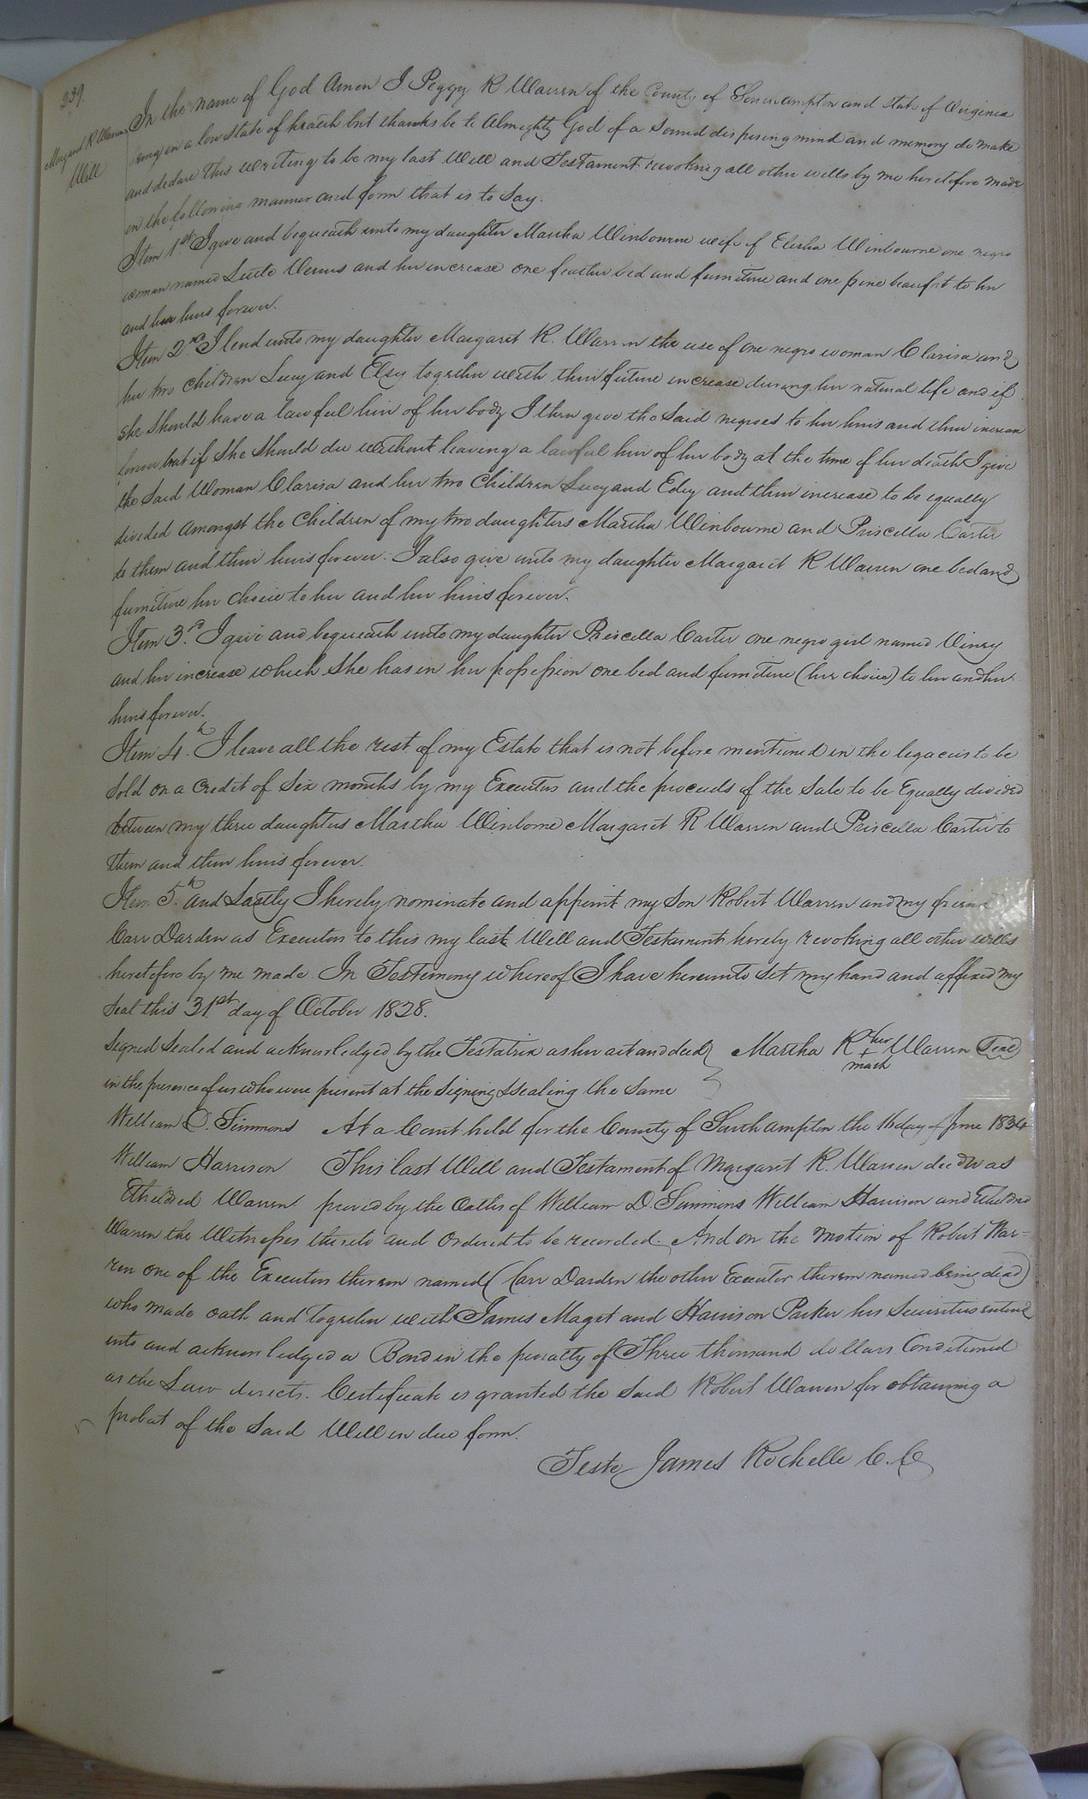 239.
Margaret R Warren
Will
In the name of God Amen I Peggy R Warren of the County of Southampton and State of Virginia
being in a low state of health but thanks be to Almighty God of a sound disposing mind and memory do make
and declare this writing to be my last Will and Testament revoking all other wills by me heretofore made
in the following manner and form that is to Say.
Item 1st I give and bequeath unto my daughter Martha Winbourne wife of Elisha Winbourne one negro
woman named Venus and her increase one feather bed and furniture and one pine beaufet to her
and her heirs forever.
Item 2nd I lend unto my daughter Margaret R. Warren the use of one negro woman Clarisa and
her two Children Lucy and Elsy together with their future increase during her natural life and if
she should have a lawful heir of her body I then give the said negroes to her heirs and their increase
forever but if she should die without leaving a lawful heir of her body at the time of her death I give
the said Woman Clarisa and her two Children Lucy and Edey and their increase to be equally
divided amongst the Children of my two daughters Martha Winbourne and Priscilla Carter
to them and their heirs forever. I also give unto my daughter Margaret R Warren one bed and
furniture her choice to her and her heirs forever.
Item 3rd I give and bequeath unto my daughter Priscilla Carter one negro girl named Viney
and her increase which She has in her possession one bed and furniture (her choice) to her and her
heirs forever.
Item 4th I leave all the rest of my Estate that is not before mentioned in the legacies to be
sold on a credit of Six months by my Executors and the proceeds of the Sale to be Equally divided
between my three daughters Martha Winborne Margaret R Warren and Priscilla Carter to
them and their heirs forever.
Item 5th and Lastly I hereby nominate and appoint my Son Robert Warren and my friend
Carr Darden as Executors to this my last Will and Testament hereby revoking all other wills
heretofore by me made. In Testimony whereof I have hereunto Set my hand and affixed my
Seal this 31st day of October 1828.
Signed Sealed and acknowledged by the Testatrix as her act and deed } Martha R her + mark Warren Seal
in the presence of us who were present at the Signing & sealing the same
William D. Simmons At a Court held for the County of Southampton the 16 day of June 1834
William Harrison This last Will and Testament of Margaret R. Warren decd was
Etheldred Warren proved by the oaths of William D Simmons William Harrison and Etheldred
Warren the Witnesses thereto and ordered to be recorded. And on the motion of Robert War-
ren one of the Executors therein named (Carr Darden the other Executor therein named being dead)
who made oath and together with James Maget and Harrison Parker his Securities entered
into and acknowledged a Bond in the penalty of Three thousand dollars Conditioned
as the Law directs. Certificate is granted the said Robert Warren for obtaining a
probat of the Said Will in due form.
Teste James Rochelle C. C